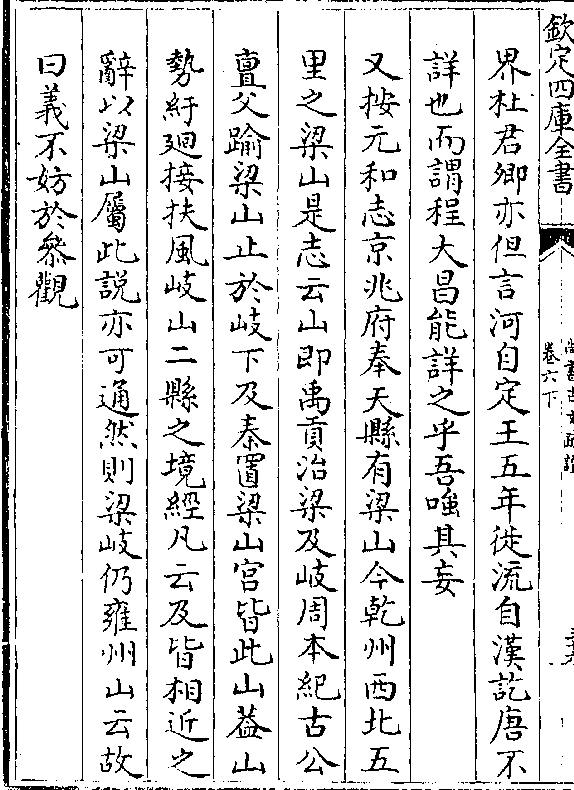 欽定四庫全書
尚書古文疏證
卷六下
界杜君卿亦但言河自定王五年徙流自漢訖唐不
詳也而謂程大昌能詳之乎吾嗤其妄
又按元和志京兆府奉天縣有梁山今乾州西北五
里之梁山是志云山即禹貢治梁及岐周本紀古公
亶父踰梁山止於岐下及秦置梁山宮皆此山葢山
勢紆廻接扶風岐山二縣之境經凡云及皆相近之
辭以梁山屬此說亦可通然則梁岐仍雍州山云故
曰義不妨於叅觀